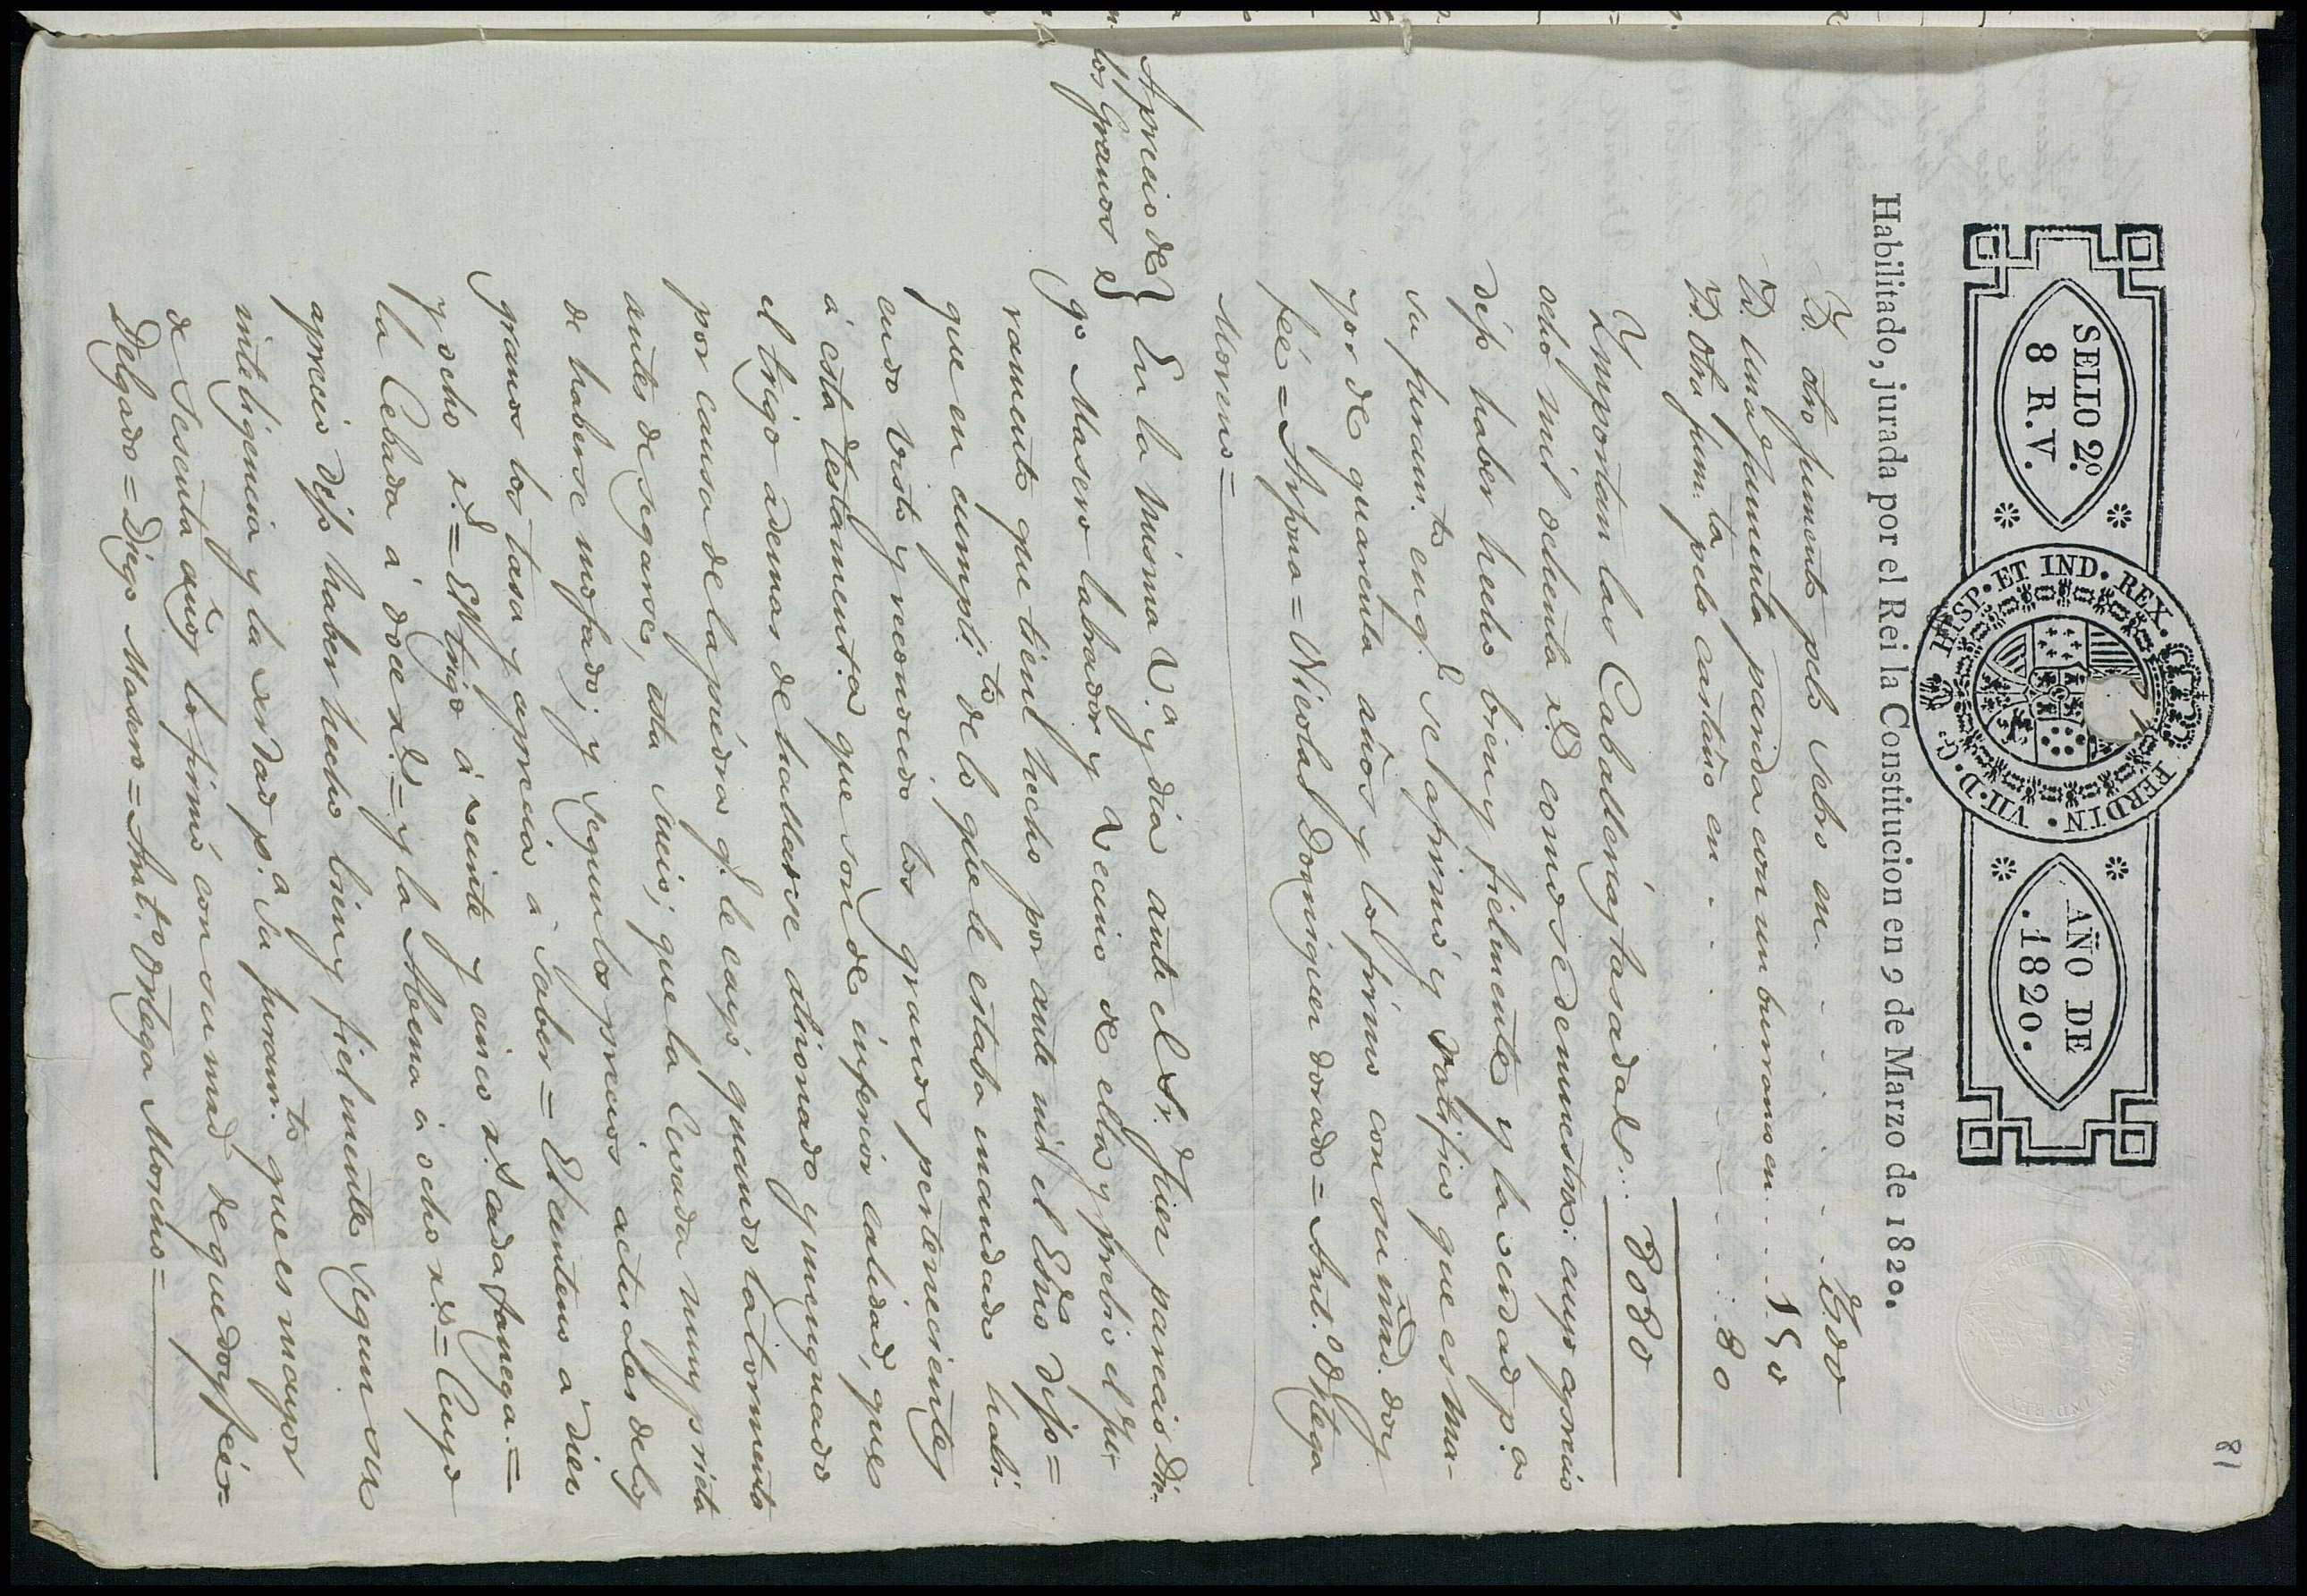 81
SELLO 2º.
8 R.V.
HISP. ET IND. REX. FERDIN. VII. D. G.
AÑO DE
1820.
Habilitado, jurada por el Rei la Constitucion en 9 de Marzo de 1820.
Yd. otro jumento pelo negro en
Yd. una jumenta parida con un burranco en 150
Yd. otra jum.ta pelo castaño en 80
Ymportan las Caballerías tasadas 8080
ocho mil ochenta r.s como se demuestra: cuyo aprecio
dijo haber hecho bien y fielmente y la verdad p.a
su juram.to en q.e se afirmó y ratificó que es ma-
yor de quarenta años y lo firmó con su mrd. doy
fee = Arjona = Nicolas Dominguez dorado = Ant.o Ortega
Moreno =
Aprecio de
los Granos
En la misma V.a y dia ante el Sr. Juez pareció Die-
go Masero labrador y Vecino de ella y prebio el ju-
ramento que tiene hecho por ante mi el Esno dijo =
que en cumpli.to de lo que le estaba mandado habi-
endo visto y reconocido los granos pertenecientes
á esta testament.a que son de inferior calidad, que
el trigo ademas de hallarse atizonado y menguado
por causa de la piedra q.e le cayó quando la tormenta
antes de segarse, esta sucio; que la Cevada muy prieta
de haberse mojado; y segun los precios actuales de los
granos los tasa y aprecia á saber = El centeno á diez
y ocho r.s = El trigo á veinte y cinco r.s cada fanega =
la Cebada á doce r.s = y la Abena á ocho r.s = Cuyo
aprecio dijo haber hecho bien y fielmente segun su
inteligencia y la verdad p.a su juram.to que es mayor
de sesenta años lo firmó con su mrd de que doy fée =
Delgado = Diego Masero = Ant.to Ortega Moreno =